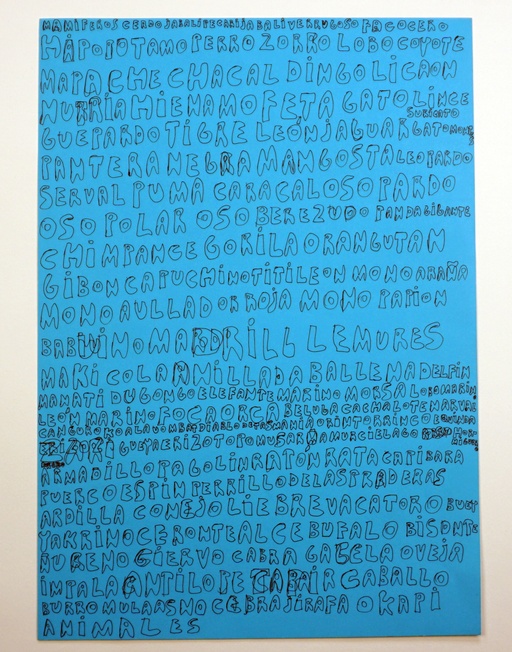 MAMIFEROS CERDO JABALI PECARI JABALI VERRUGOSO FACOCERO
HIPOPOTAMO PERRO ZORRO LOBO COYOTE
MAPACHE CHACAL DINGO LICAON
NUTRIA HIENA MOFETA GATO LINCE
SURICATO
GUEPARDO TIGRE LEON JAGUAR GATO MONTES
PANTERA NEGRA MANGOSTA LEOPARDO
SERVAL PUMA CARACAL OSO PARDO
OSO POLAR OSO BEREZUDO PANDA GIGANTE
CHIMPANCE GORILA ORANGUTAN
GIBON CAPUCHINO TITI LEON MONO ARAÑA
MONO AULLADOR ROJA MONO PAPION
BABUINO MANDRILL LEMURES
MAKI COLA ANILLADA BALLENA DELFIN
MANATI DUGONGO ELEFANTE MARINO MORSA LOBO MARINO
LEÓN MARINO FOCA ORCA BELUGA CACHALOTE NARVAL
CANGURO KOALA UOMBAT DIABLO DE TASMANIA ORINTORRINCO EQUIDNA
ERIZO TOPO MUSARAÑA MURCIELAGO
ARMADILLO PAGOLIN RATON RATA CAPIBARA
PUERCOESPIN PERRILLO DE LAS PRADERAS
ARDILLA CONEJO LIEBRE VACA TORO BUEY
YAK RINOCERONTE ALCE BUFALO BISONTE
RENO CIERVO CABRA GACELA OVEJA
IMPALA ANTILOPE TAPIR CABALLO
BURRO MULA ASNO CEBRA JIRAFA OKAPI
ANIMALES